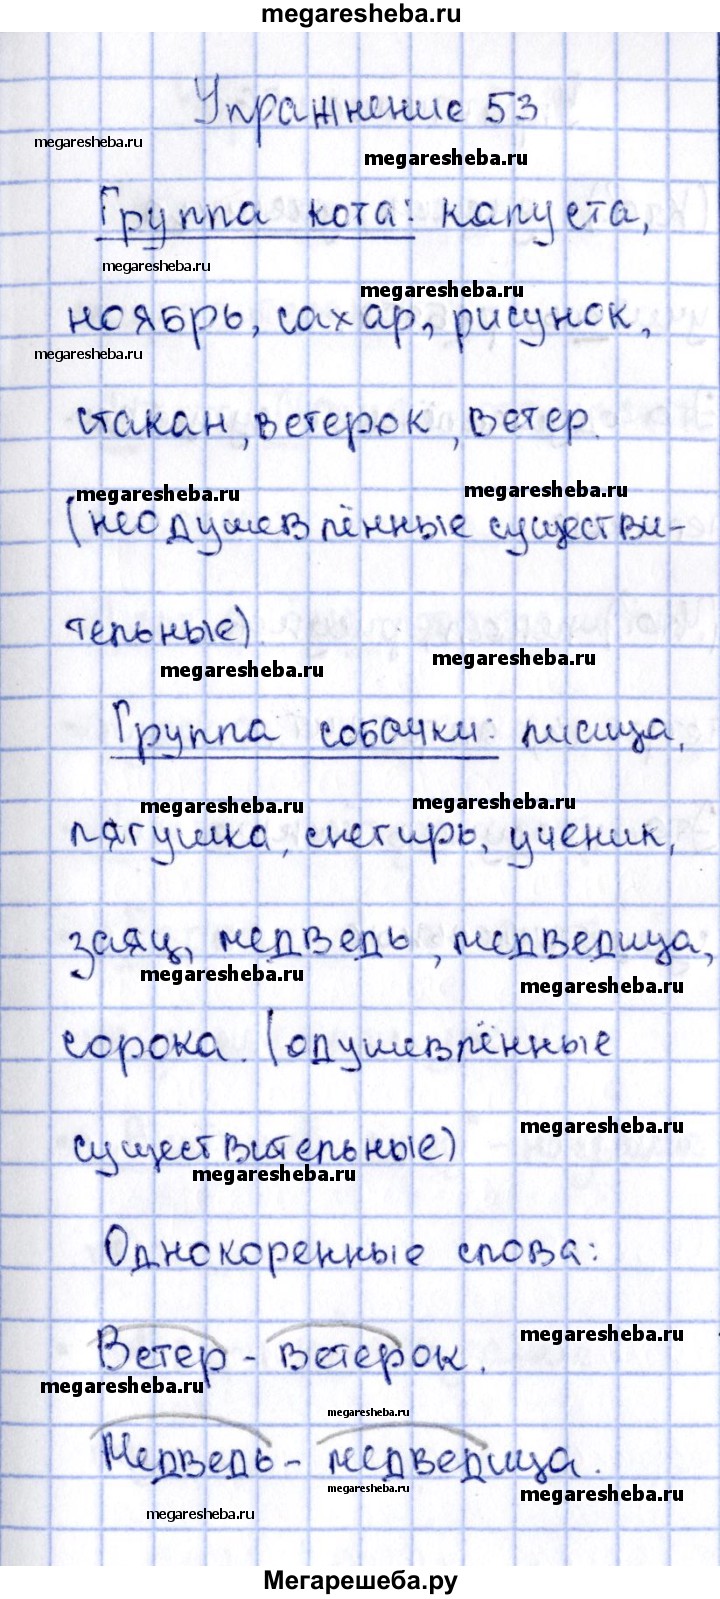 megaresheba.ru
Упражнение 53
megaresheba.ru
megaresheba.ru
Группа кота: капуста,
megaresheba.ru
megaresheba.ru
ноябрь, сахар, рисунок,
megaresheba.ru
стакан, ветерок, ветер.
megaresheba.ru
megaresheba.ru
(неодушевлённые существи-
тельные).
megaresheba.ru
megaresheba.ru
Группа собачки: лисица,
megaresheba.ru
megaresheba.ru
лягушка, снегирь, ученик,
заяц, медведь, медведица,
megaresheba.ru
megaresheba.ru
сорока. (одушевлённые
megaresheba.ru
существительные)
megaresheba.ru
Однокоренные слова:
megaresheba.ru
Ветер - ветерок.
megaresheba.ru
megaresheba.ru
Медведь - медведица.
megaresheba.ru
megaresheba.ru
megaresheba.ru
Мегарешеба.ру